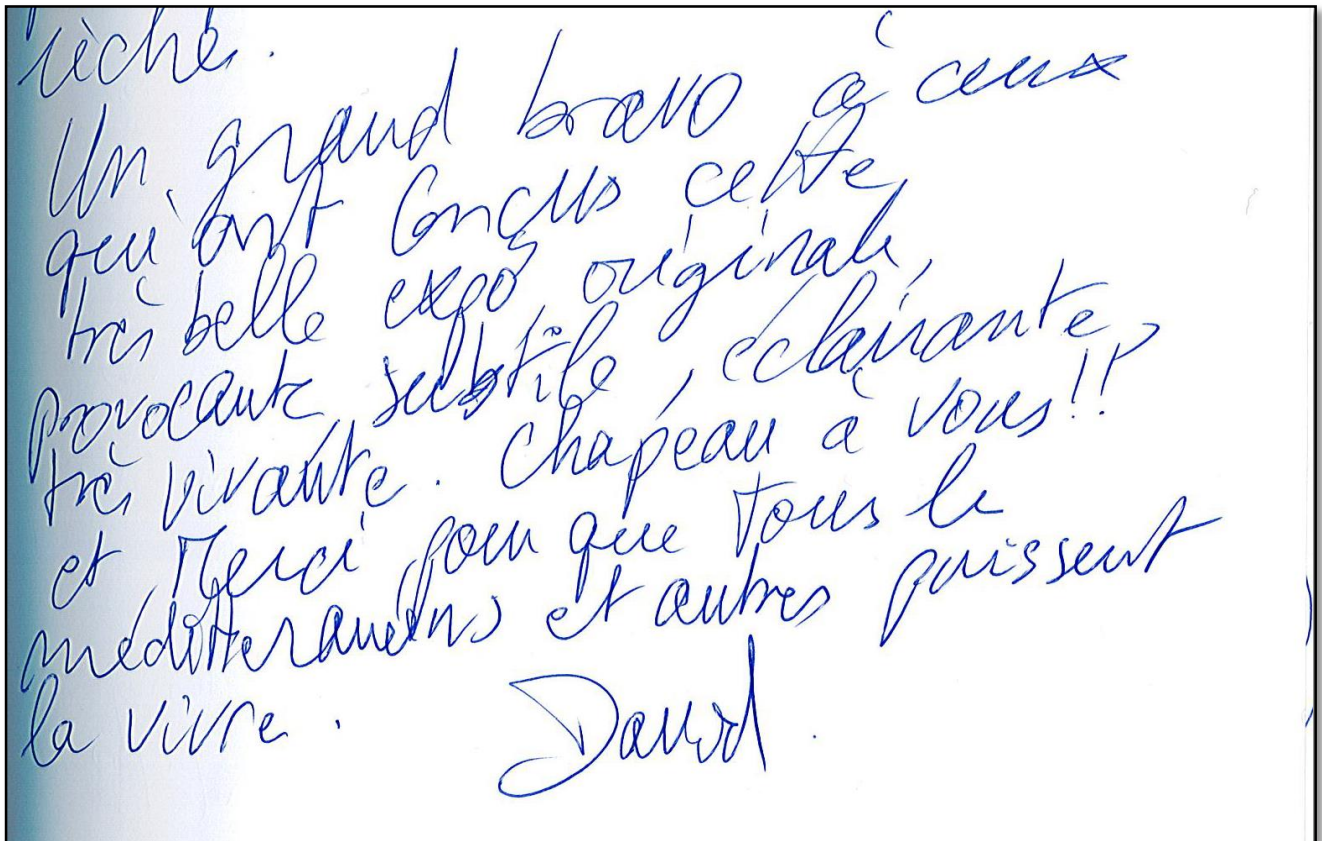 Un grand bravo à ceux
qui ont conçus cette
très belle expo, originale,
provocante, subtile, éclairante,
très vivante. Chapeau à vous!!
et Merci pour que tous le
méditterranéens et autres puissent
la vivre.
David.